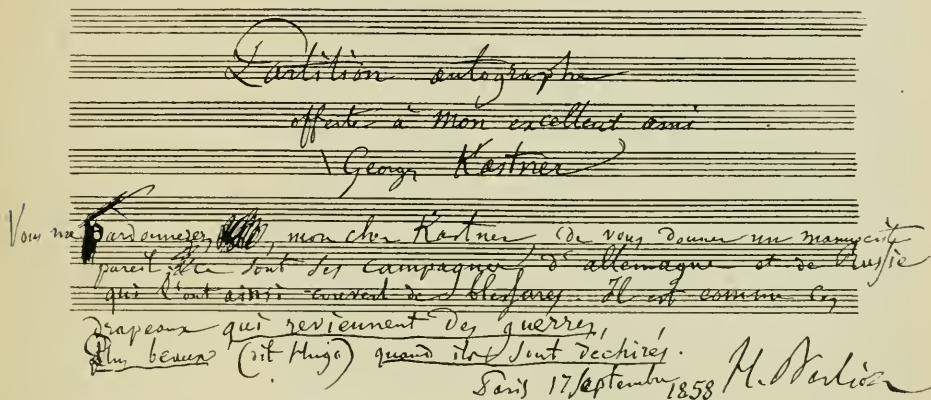 Partition autographe
offerte à mon excellent ami
Georges Kastner
Vous me pardonnerez, mon cher Kastner, de vous donner un manuscrit
pareil; ce sont ses campagnes d'allemagne et de Russie
qui l'ont ainsi couvert de blessures. Il est comme ces
drapeaux qui reviennent des guerres,
Plus beaux (dit Hugo) quand ils sont déchirés.
Paris 17 septembre 1858 H. Berlioz